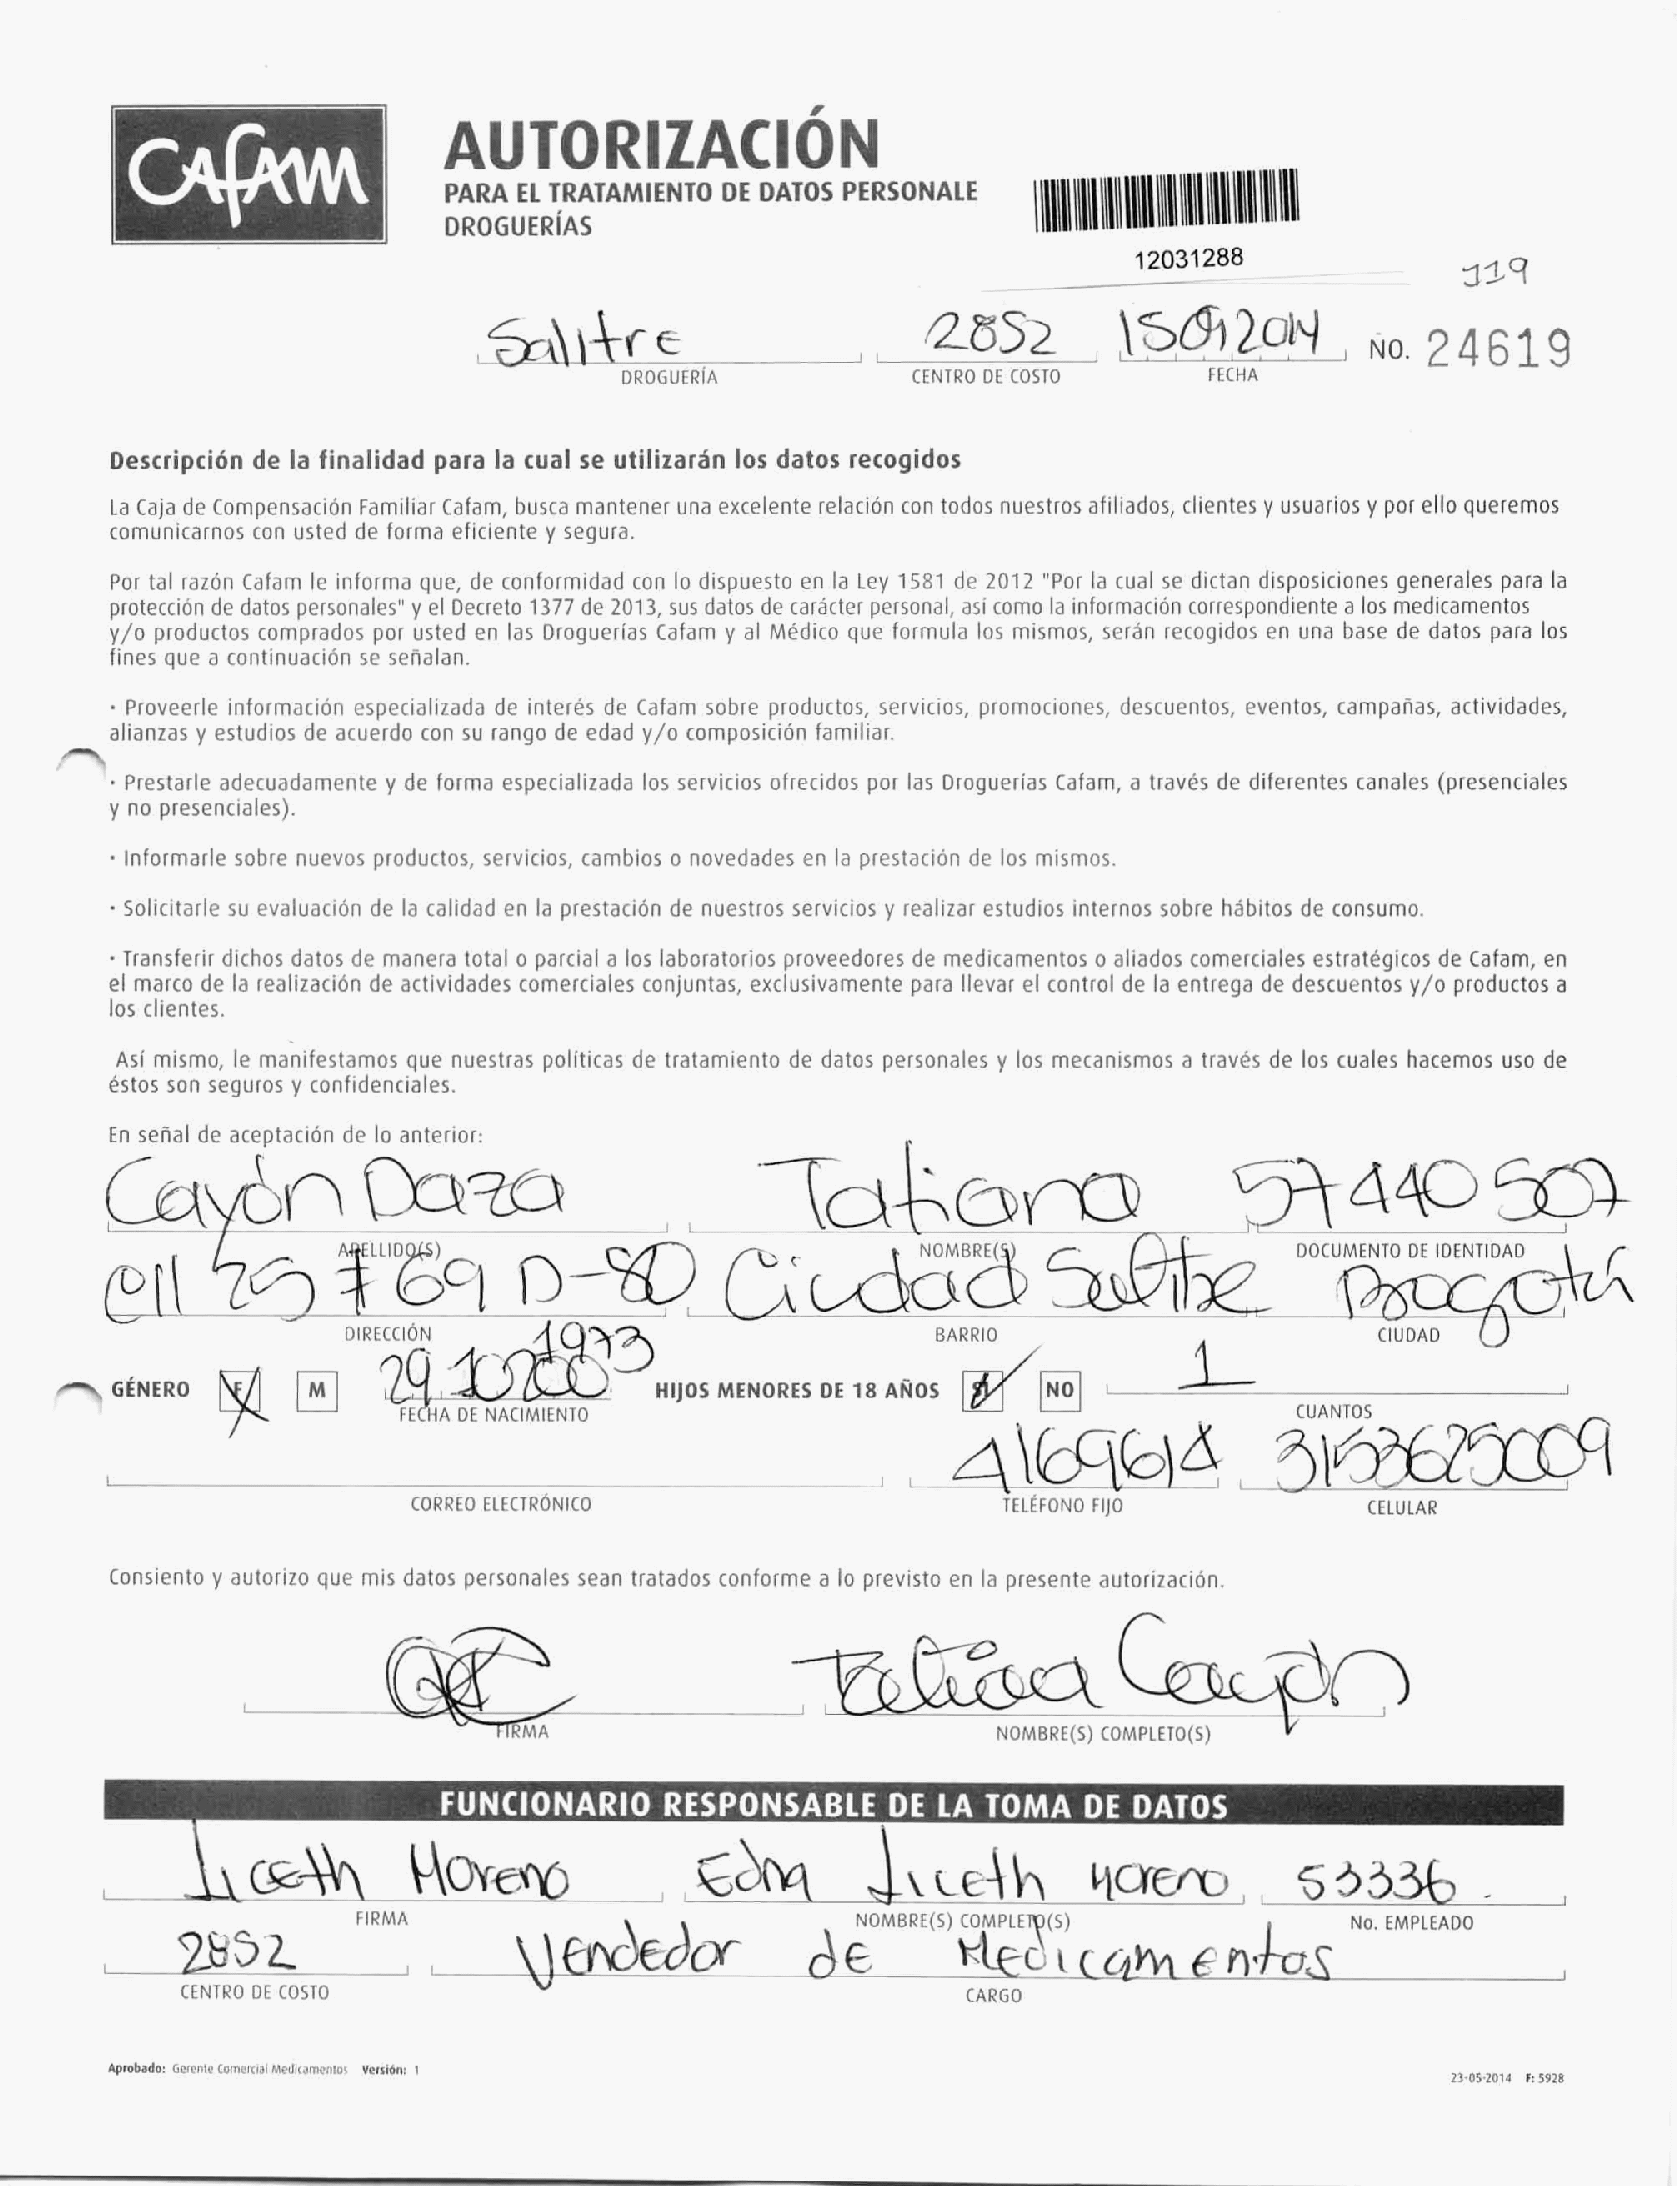 CAFAM
AUTORIZACIÓN
PARA EL TRATAMIENTO DE DATOS PERSONALE
DROGUERÍAS
12031288
119
Salitre 2852 15092014 NO. 24619
DROGUERÍA CENTRO DE COSTO FECHA
Descripción de la finalidad para la cual se utilizarán los datos recogidos
La Caja de Compensación Familiar Cafam, busca mantener una excelente relación con todos nuestros afiliados, clientes y usuarios y por ello queremos
comunicarnos con usted de forma eficiente y segura.
Por tal razón Cafam le informa que, de conformidad con lo dispuesto en la Ley 1581 de 2012 "Por la cual se dictan disposiciones generales para la
protección de datos personales" y el Decreto 1377 de 2013, sus datos de carácter personal, así como la información correspondiente a los medicamentos
y/o productos comprados por usted en las Droguerías Cafam y al Médico que formula los mismos, serán recogidos en una base de datos para los
fines que a continuación se señalan.
· Proveerle información especializada de interés de Cafam sobre productos, servicios, promociones, descuentos, eventos, campañas, actividades,
alianzas y estudios de acuerdo con su rango de edad y/o composición familiar.
· Prestarle adecuadamente y de forma especializada los servicios ofrecidos por las Droguerías Cafam, a través de diferentes canales (presenciales
y no presenciales).
· Informarle sobre nuevos productos, servicios, cambios o novedades en la prestación de los mismos.
· Solicitarle su evaluación de la calidad en la prestación de nuestros servicios y realizar estudios internos sobre hábitos de consumo.
· Transferir dichos datos de manera total o parcial a los laboratorios proveedores de medicamentos o aliados comerciales estratégicos de Cafam, en
el marco de la realización de actividades comerciales conjuntas, exclusivamente para llevar el control de la entrega de descuentos y/o productos a
los clientes.
Así mismo, le manifestamos que nuestras políticas de tratamiento de datos personales y los mecanismos a través de los cuales hacemos uso de
éstos son seguros y confidenciales.
En señal de aceptación de lo anterior:
Cayón Daza Tatiana 57440507
APELLIDO(S) NOMBRE(S) DOCUMENTO DE IDENTIDAD
Cll 25 # 69 D-80 Ciudad Salitre Bogotá
DIRECCIÓN BARRIO CIUDAD
1973
GÉNERO F M 29 10 HIJOS MENORES DE 18 AÑOS SI NO 1
FECHA DE NACIMIENTO CUANTOS
4169614 3153625009
CORREO ELECTRÓNICO TELÉFONO FIJO CELULAR
Consiento y autorizo que mis datos personales sean tratados conforme a lo previsto en la presente autorización.
Tatiana Cayón
FIRMA NOMBRE(S) COMPLETO(S)
FUNCIONARIO RESPONSABLE DE LA TOMA DE DATOS
Liceth Moreno Edna Liceth Moreno 53336
FIRMA NOMBRE(S) COMPLETO(S) No. EMPLEADO
2852 Vendedor de Medicamentos
CENTRO DE COSTO CARGO
Aprobado: Gerente Comercial Medicamentos Versión: 1
23-05-2014 F: 5928